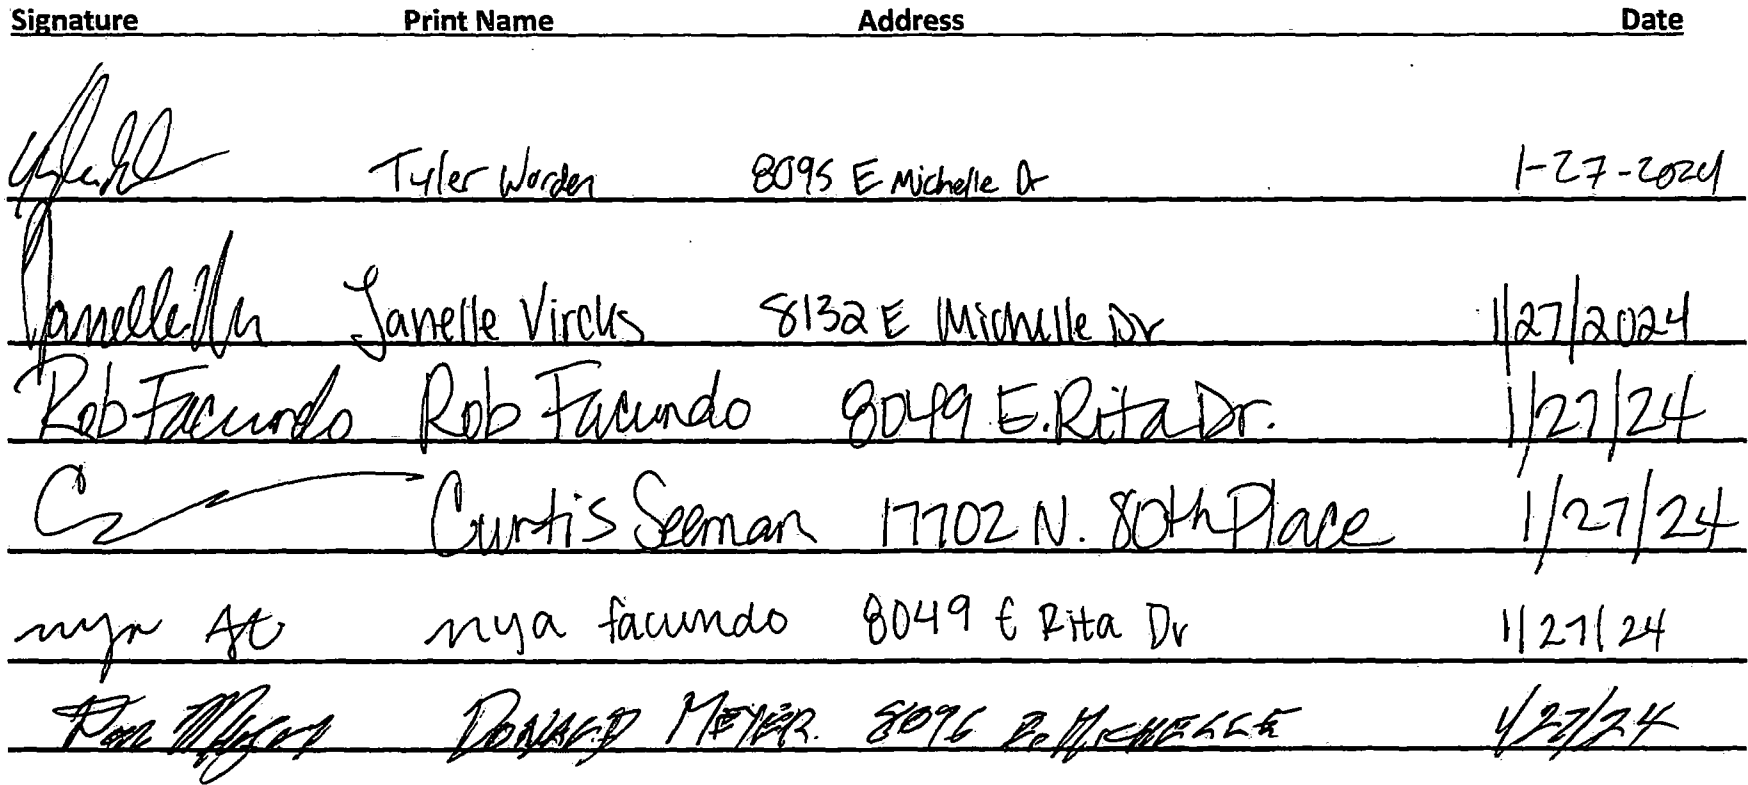 Signature Print Name Address Date
Tyler Worden 8095 E Michelle Dr 1-27-2024
Janelle Vircks 8132 E Michelle Dr 1/27/2024
Rob Facundo Rob Facundo 8049 E. Rita Dr. 1/27/24
Curtis Seeman 17702 N. 80th Place 1/27/24
nya nya facundo 8049 E Rita Dr 1/27/24
Don Meyer DONALD MEYER. 8096 E. MICHELLE 1/27/24